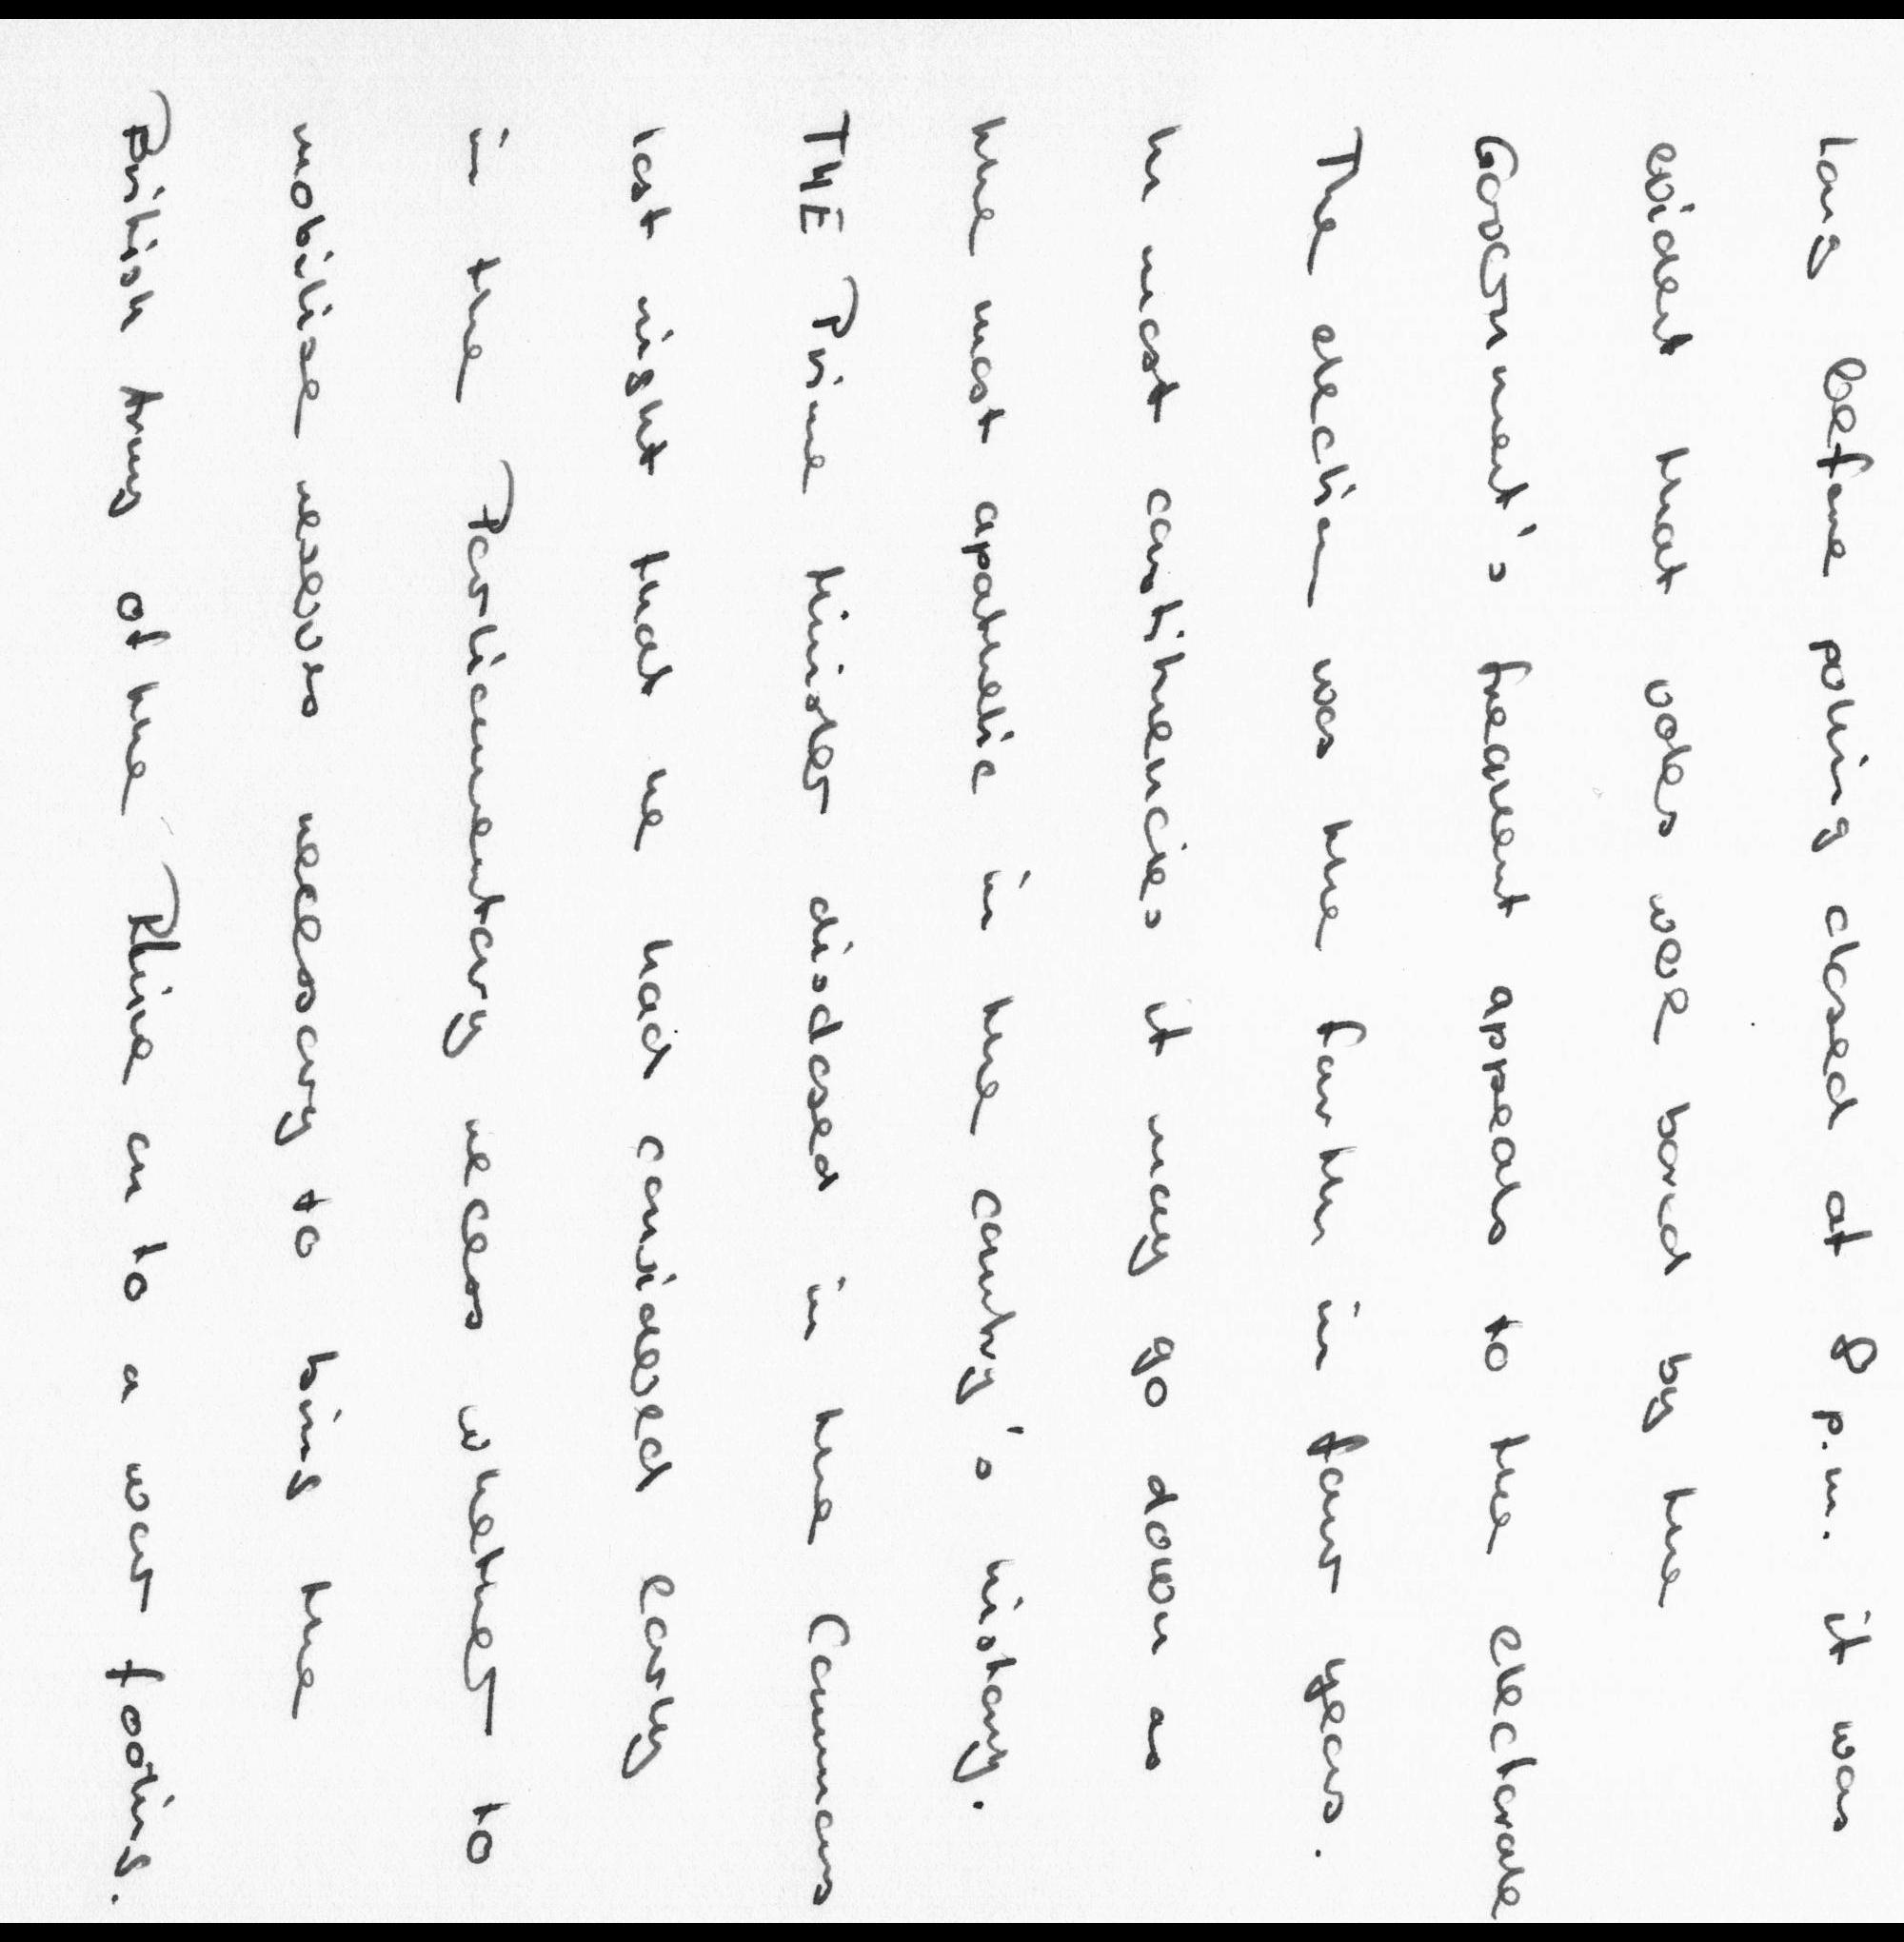 long before poling closed at 8 p.m. it was
evident that votes were bored by the
Government's frequent appeals to the electorate
The election was the fourth in four years.
In most constituencies it may go down as
the most apathetic in the country's history.
THE Prime Minister disclosed in the Commons
last night that he had considered early
in the Parliamentary recess whether to
mobilise reserves necessary to bring the
British Army of the Rhine on to a war footing.